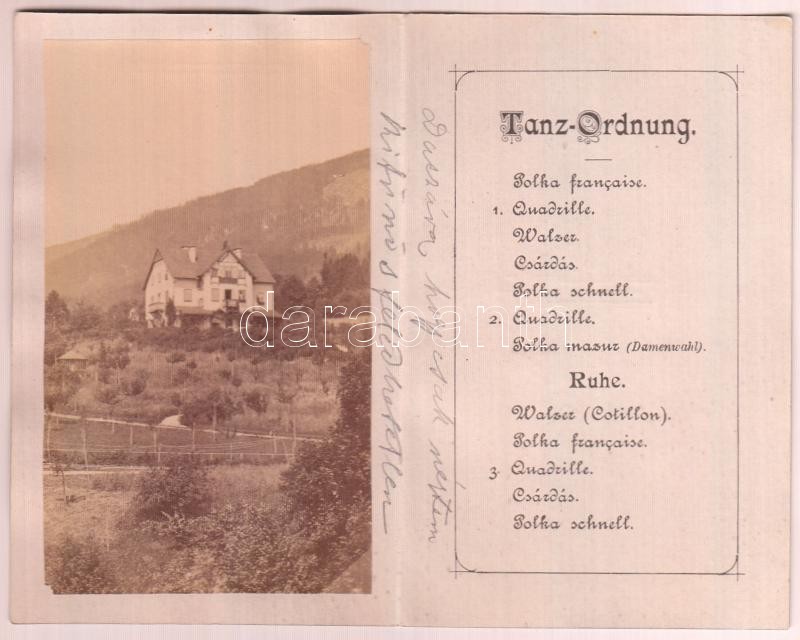 Daczára, hogy csak nejtem
Kitünő s feledhetetlen
Tanz-Ordnung.
Polka française.
1. Quadrille.
Walzer.
Csárdás.
Polka schnell.
2. Quadrille.
Polka mazur (Damenwahl).
Ruhe.
Walzer (Cotillon).
Polka française.
3. Quadrille.
Csárdás.
Polka schnell.
darabanth